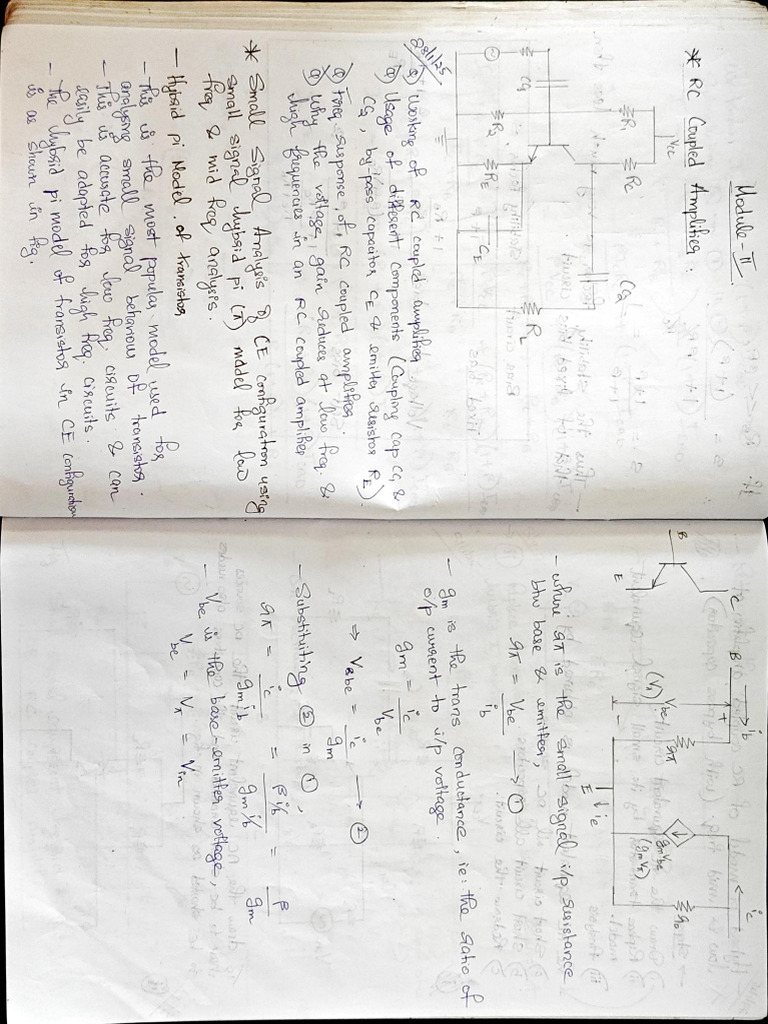 Module-II
* RC Coupled Amplifier.
Vcc
R1
Rc
CC1
CC2
R2
RE
CE
RL
28/1/25
Q) Working of RC coupled amplifier
Q) Usage of different components (Coupling cap CC1 &
CC2, by-pass capacitor CE & emitter resistor RE)
Q) Freq response of RC coupled amplifier.
Q) Why the voltage gain reduces at low freq. &
high frequencies in an RC coupled amplifier
* Small Signal Analysis of CE configuration using
small signal hybrid pi (π) model for low
freq & mid freq analysis.
- Hybrid pi Model of transistor
- This is the most popular model used for
analysing small signal behaviour of transistor.
- This is accurate for low freq. circuits & can
easily be adapted for high freq. circuits.
- The hybrid pi model of transistor in CE configuration
is as shown in fig.
B
C
E
B
ib
+
Vbe
(Vπ)
-
rπ
E
ie
gmVbe
(gmVπ)
ro
ic
C
- where rπ is the small signal i/p resistance
btw base & emitter,
rπ = Vbe / ib → ①
- gm is the trans conductance, ie: the ratio of
o/p current to i/p voltage.
gm = ic / Vbe
⇒ Vbe = ic / gm → ②
- Substituting ② in ①,
rπ = ic / gm ib = β ib / gm ib = β / gm
- Vbe is the base-emitter voltage,
Vbe = Vπ = Vin